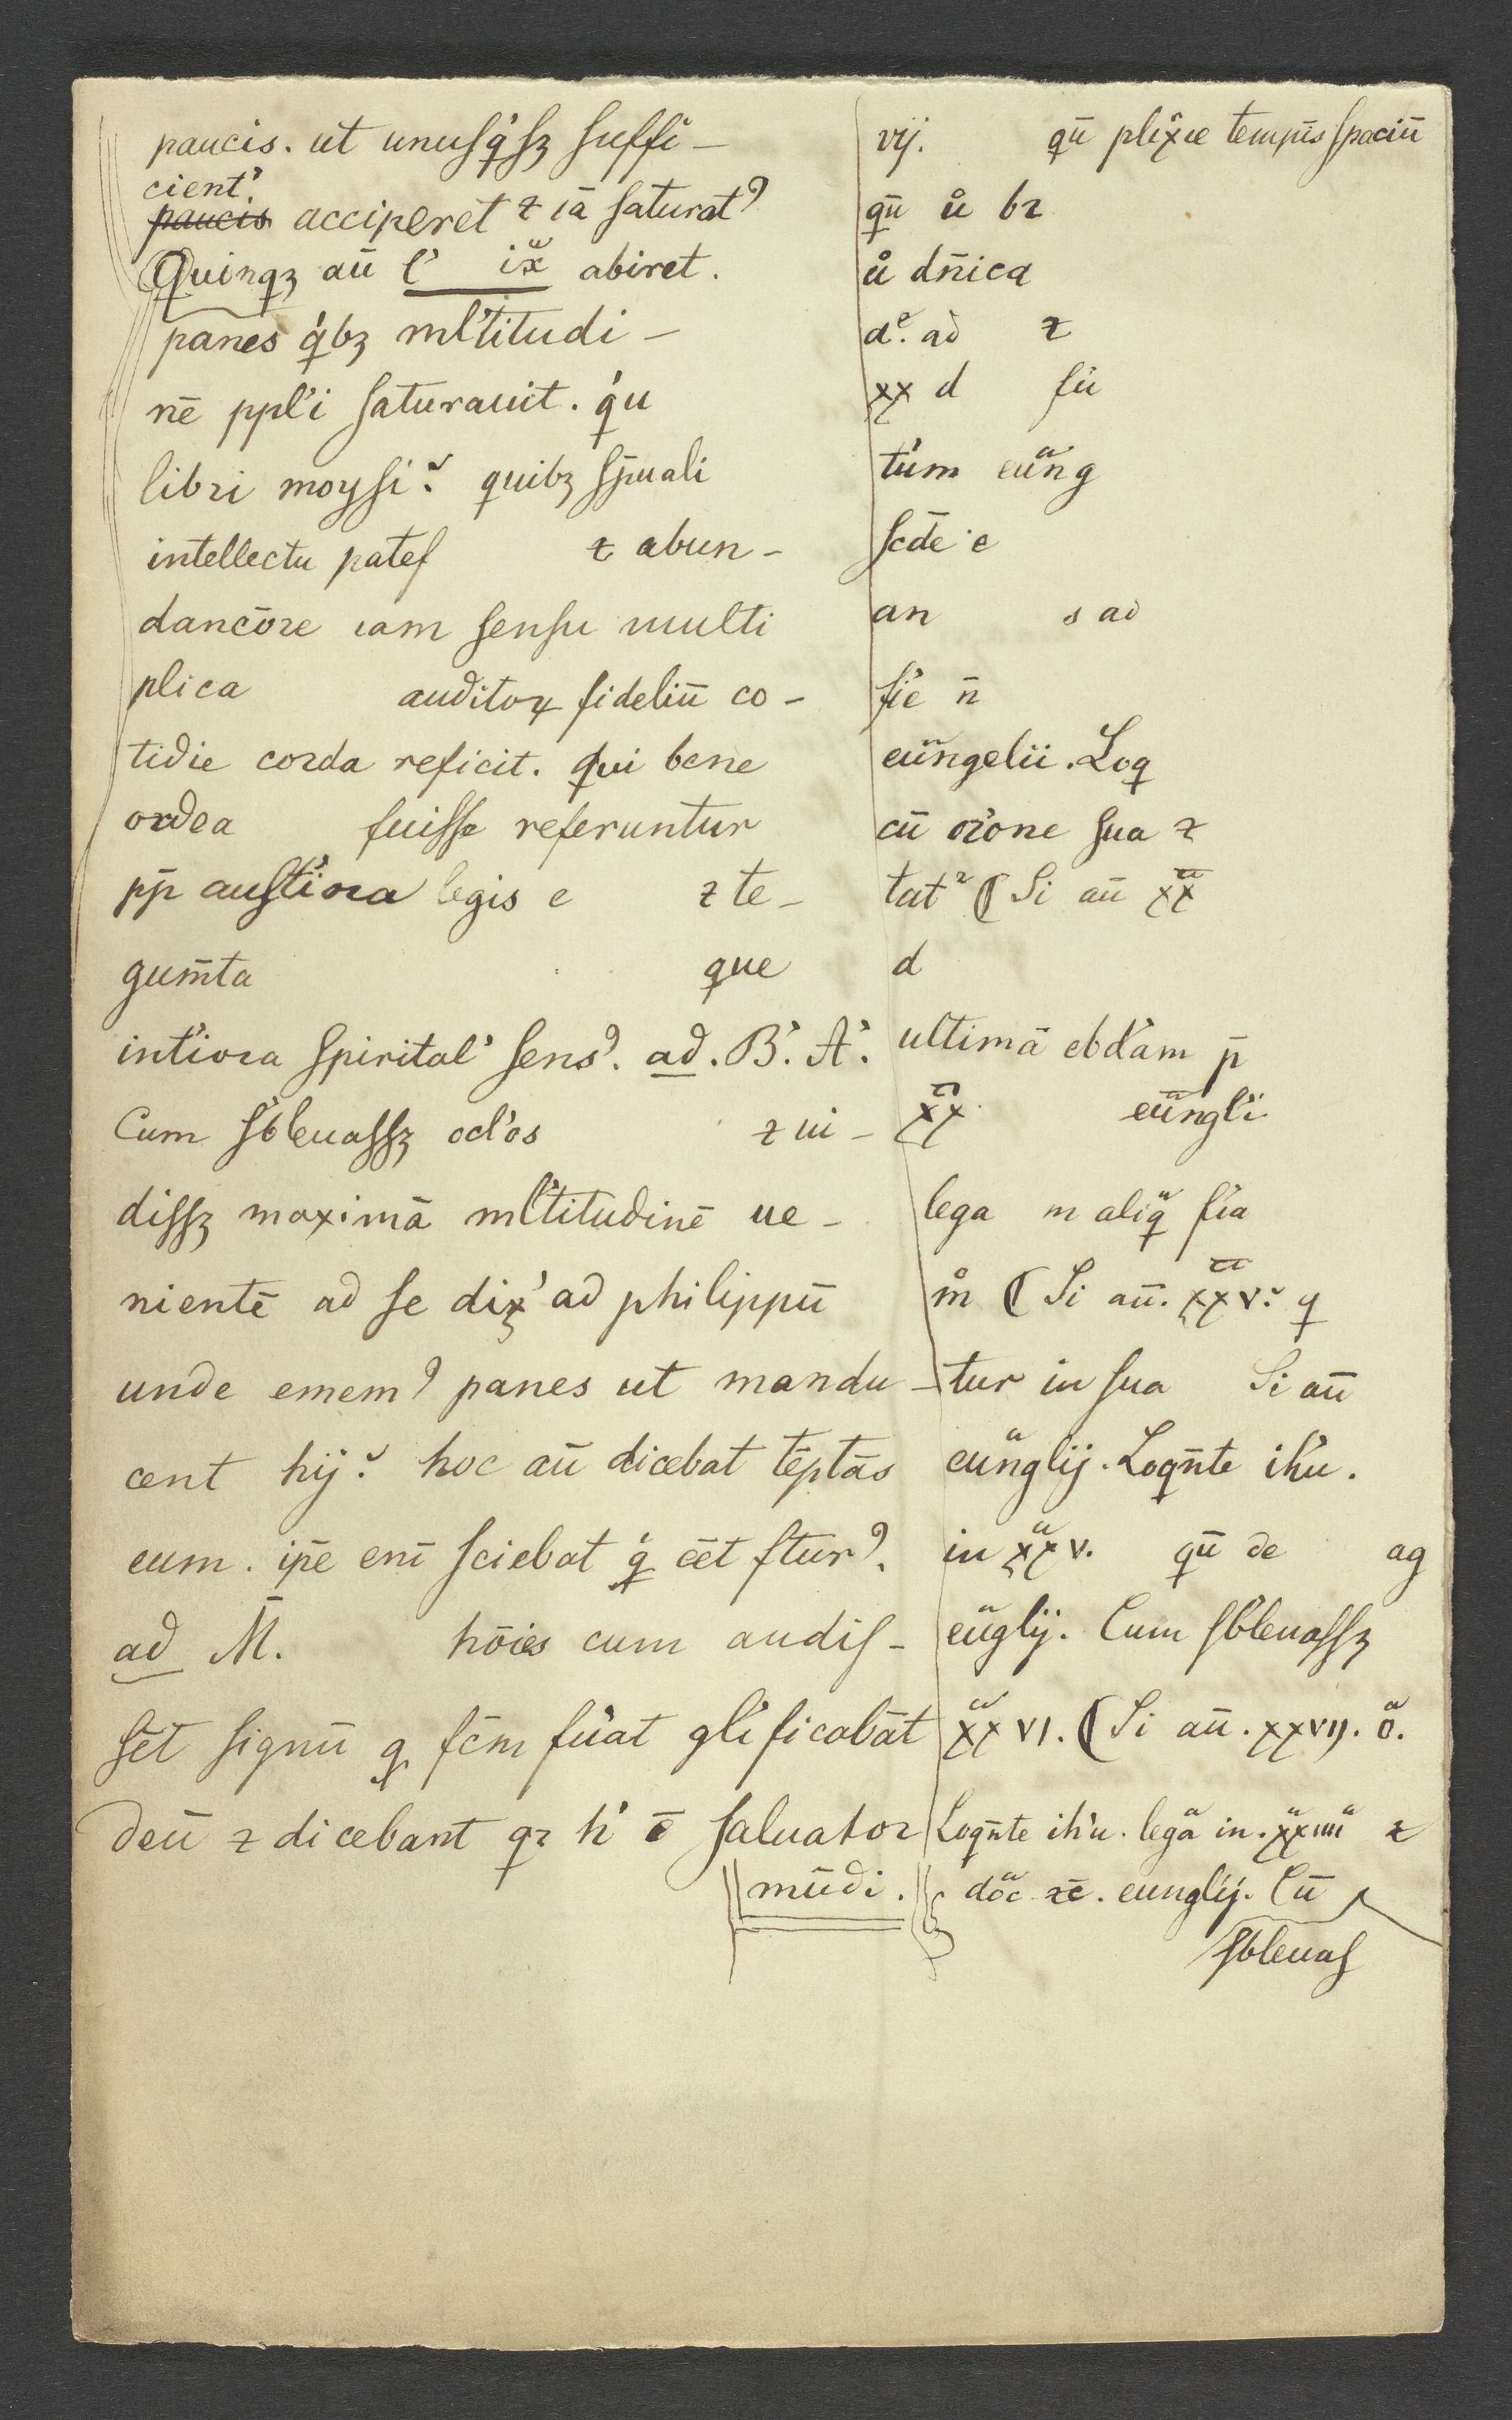 paucis. ut unusq̍sꝫ suffi-
cient̉.
paucis acciperet ⁊ iā saturat᾿
Quinqꝫ aū l᾿ ix abiret.
panes q̍bꝫ ml̉titudi-
nē ppl̉i saturauit. q̍u
libri moysi. quibꝫ sp̄uali
intellectu patef ⁊ abun-
dancōre iam sensu multi
plica auditoꝝ fideliū co-
tidie corda reficit. qui bene
ordea fuisse referuntur
pp̄ aust̉iora legis e ⁊ te-
gum̄ta que
int̉iora spirital̉ sens᾿. ad. B̉. A̓.
Cum s̉bleuassꝫ ocl̉os ⁊ ui-
dissꝫ maximā ml̉titudinē ue-
nientē ad se dix̉ ad philippū
unde emem᾿ panes ut mandu-
cent hij. hoc aū dicebat tēptās
eum. ip̄e enī sciebat q̍ cēt ftur᾿.
ad M̄. hōies cum audis-
sēt signū q fc̄m fu̓at gl̉ificabāt
deū ⁊ dicebant qꝛ h̉ ē saluator
mūdi.
vij. qū plix̉e temp̄is spaciū
qū ů bꝛ
ů dn̄ica
d. ad ⁊
xx d fū
tu̓m euͣng
sc̄de e
an s ad
fi̓e n̄
euͣngelii. Loq
cū or̓one sua ⁊
tat᾿ ⸿ Si aū xx
d
ultimā ebd̓am p̄
xx euͣngl̓i
lega m aliqͣ fi̓a
m̊ ⸿ Si aū. xxv. q
tur in sua Si aū
euͣnglij. Loqn̄te ih̓u.
in xxͣv. qū de ag
euͣglij. Cum s̉bleuassꝫ
xxͣvı. ⸿ Si aū. xxvıȷ. oͣ.
Loqn̄te ih̓u. legaͣ in. xxͣıııı ⁊
doͣc ⁊c̄. eunglij. Cū
s̉bleuas